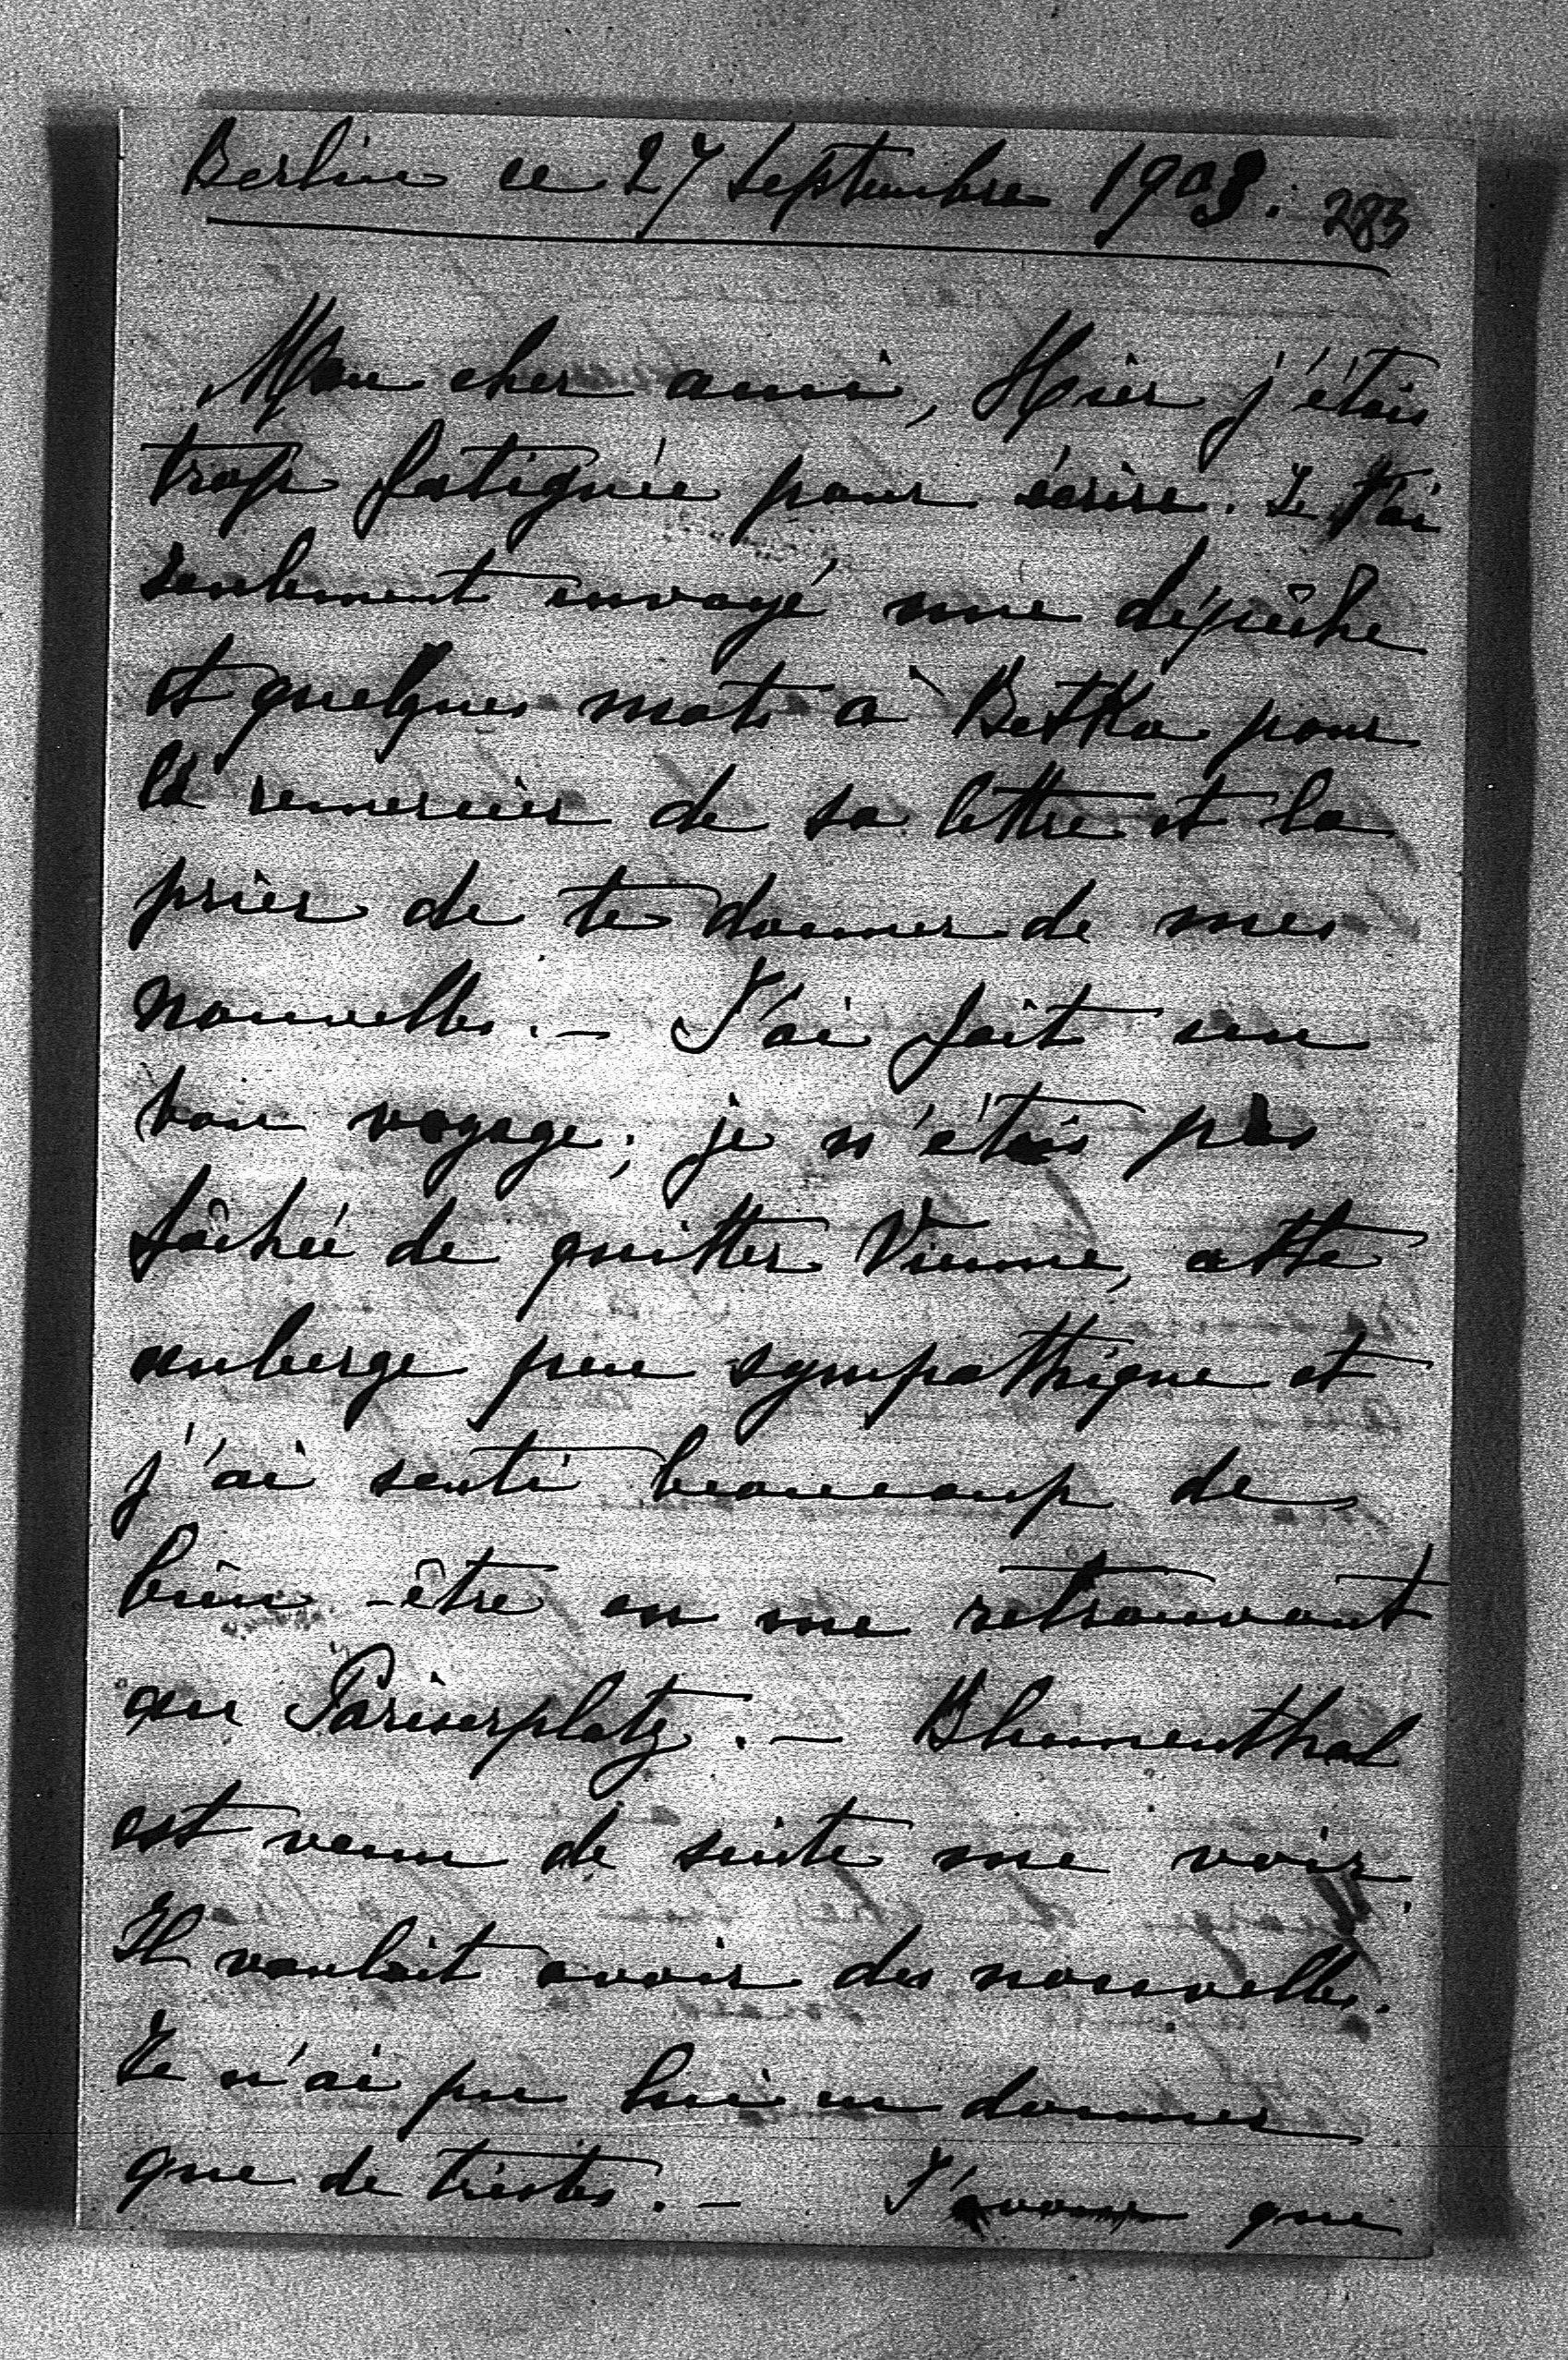 Berlin ce 27 Septembre 1903. 283
Mon cher ami, Hier j'étais
trop fatiguée pour écrire. Je t'ai
seulement envoyé une dépêche
et quelques mots à Betka pour
la remercier de sa lettre et la
prier de te donner de mes
nouvelles. — J'ai fait un
bon voyage; je n'étais pas
fâchée de quitter Vienne, cette
auberge peu sympathique et
j'ai senti beaucoup de
bien-être en me retrouvant
au Pariserplatz. — Blumenthal
est venu de suite me voir.
Il voulait avoir des nouvelles.
Je n'ai pu lui en donner
que de tristes. — J'avoue que